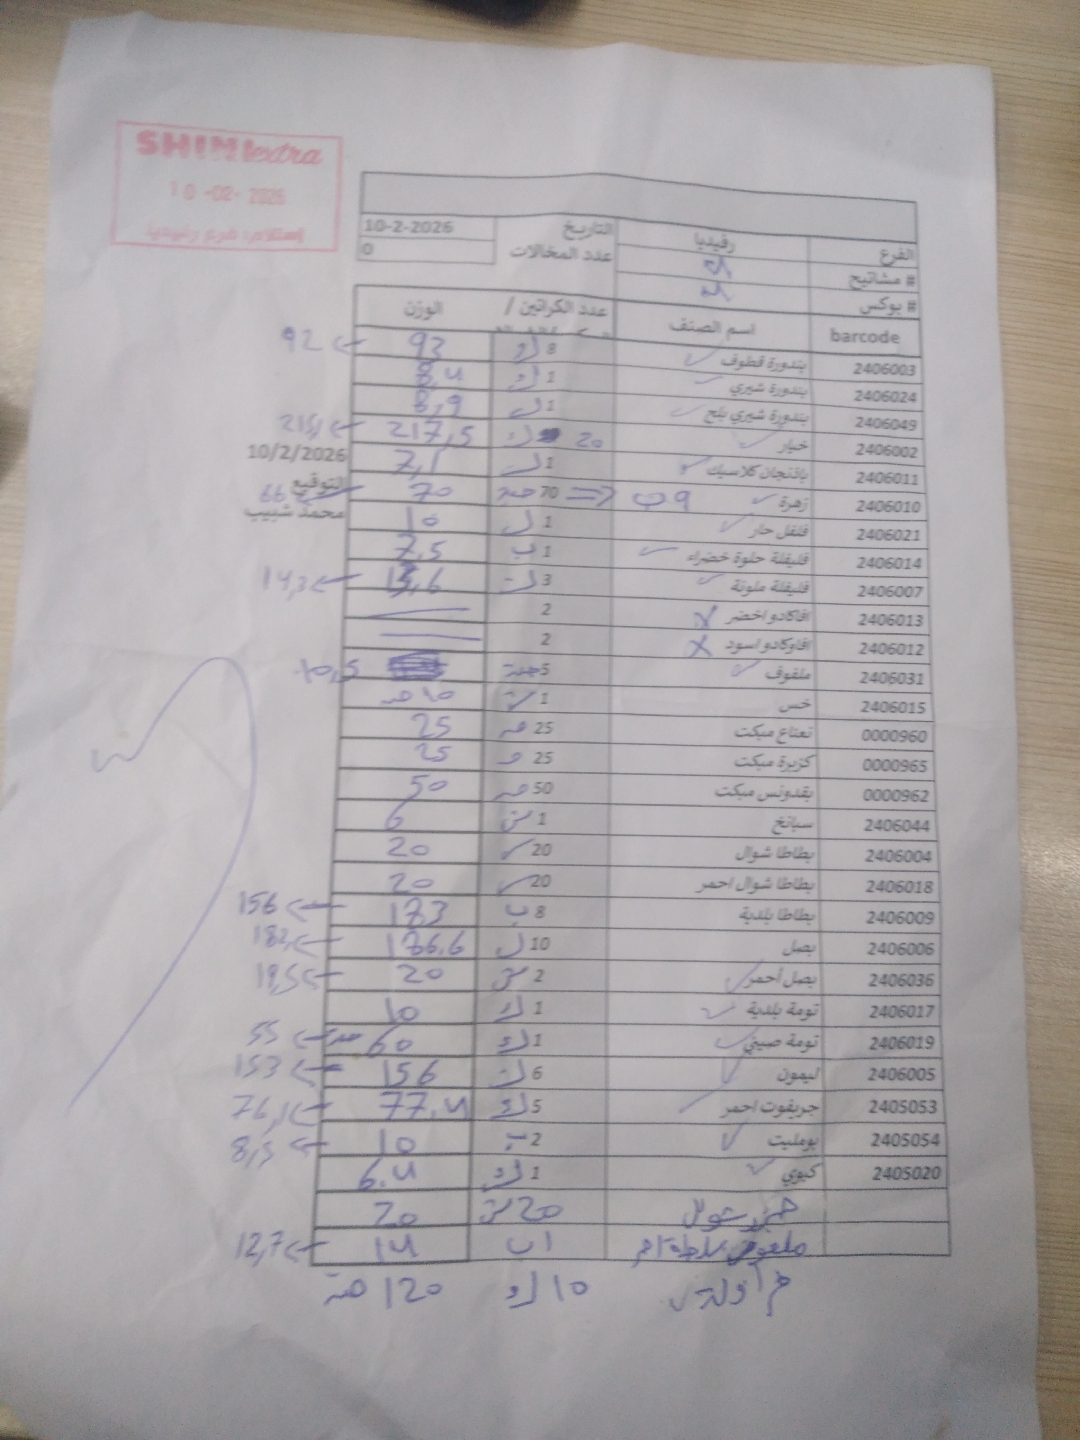 SHINI extra
10-02-2026
إستلام: فرع رفيديا
الفرع رفيديا التاريخ 10-2-2026
# مشاتيح عدد المخالات 0
# بوكس
barcode اسم الصنف عدد الكراتين / الوزن
2406003 بندورة قطوف 8 93 92
2406024 بندورة شيري 1 8,4
2406049 بندورة شيري بلح 1 8,9
2406002 خيار 20 217,5 215,1
2406011 باذنجان كلاسيك 1 7,1
10/2/2026
2406010 زهرة 9 ب 70 70 66
التوقيع
محمد شبيب
2406021 فلفل حار 1 10
2406014 فليفلة حلوة خضراء 1 ب 7,5
2406007 فليفلة ملونة 3 14,3
2406013 افاكادو اخضر 2
2406012 افاوكادو اسود 2
2406031 ملفوف 5 10,5
2406015 خس 1
0000960 نعناع مبكت 25 25
0000965 كزبرة مبكت 25 25
0000962 بقدونس مبكت 50 50
2406044 سبانخ 1 6
2406004 بطاطا شوال 20 20
2406018 بطاطا شوال احمر 20 20
2406009 بطاطا بلدية 8 ب 173 156
2406006 بصل 10 186.6 182
2406036 بصل أحمر 2 20 19,5
2406017 تومة بلدية 1 10
2406019 تومة صيني 1 60 55
2406005 ليمون 6 156 153
2405053 جريفوت احمر 5 77,4 76,1
2405054 بومليت 2 10 8,5
2405020 كيوي 1 6.4
20 20
ملفوف 1 ب 14 12,7
فراولة 10 120